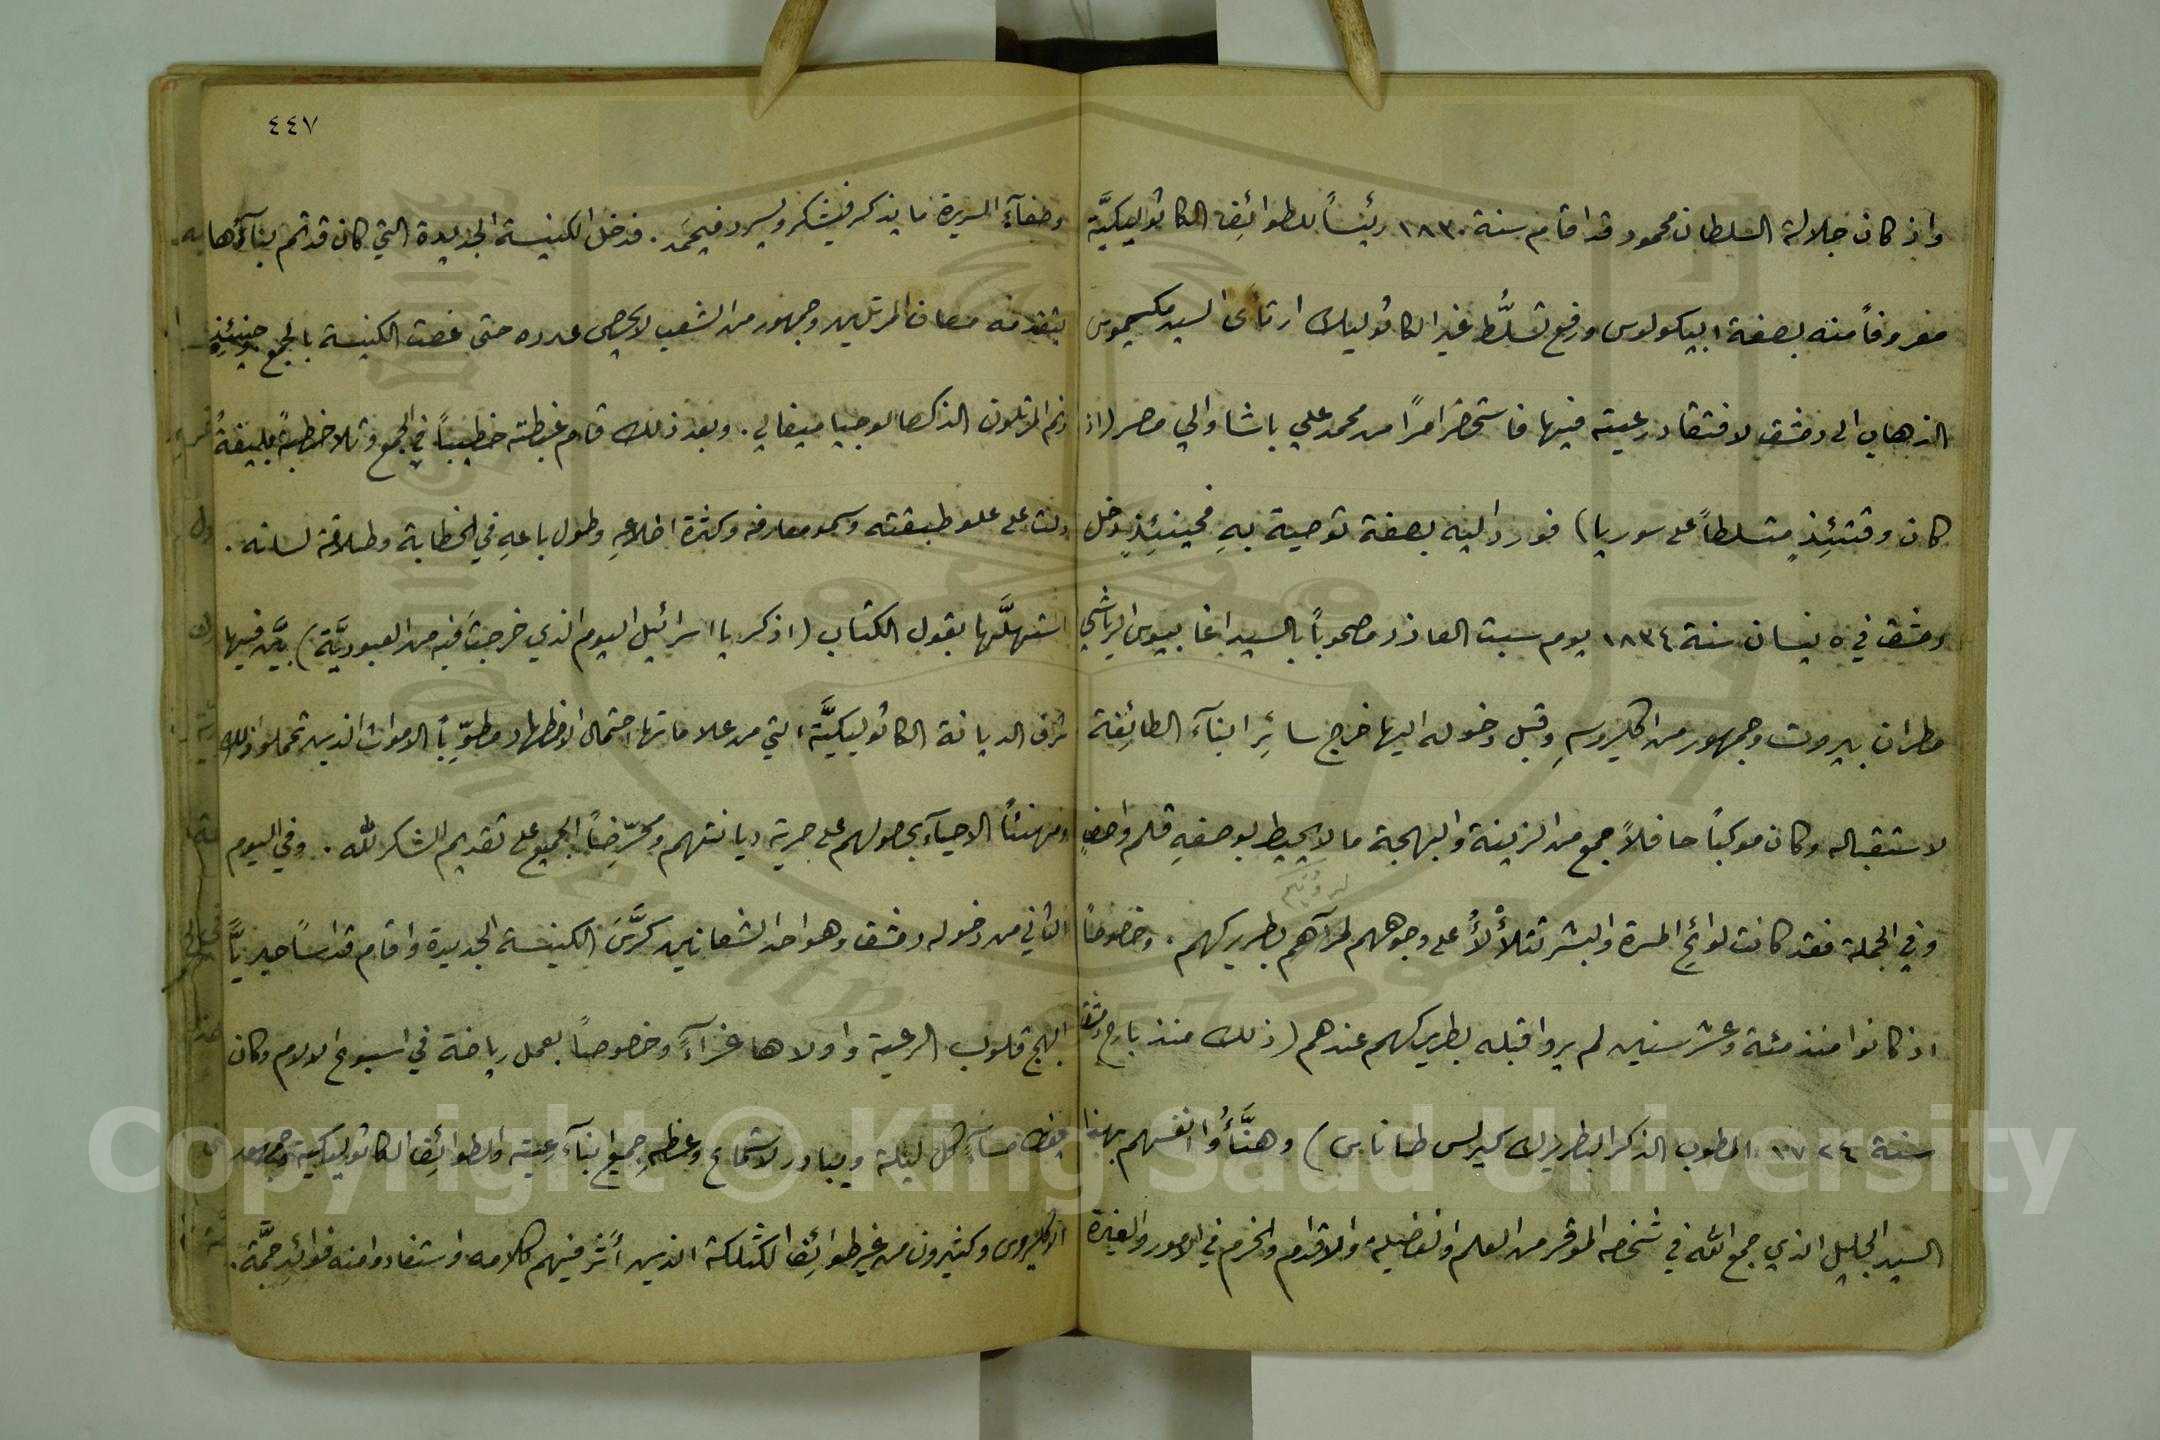 واذ كان جلالة السلطان محمود قد اقام سنة ١٨٣٠ رئيساً للطوائف الكاثوليكيَّة
مفروقاً منه بصفة ابيكولوس ورفع تسلُّط غير الكاثوليك ارتأى السيد مكسيموس
الذهاب الى دمشق لافتقاد رعيته فيها فاستحضر امرًا من محمد علي باشا والي مصر (اذ
كان وقتئِذٍ متسلطاً على سوريا) فورد اليه بصفة توصية بهِ فحينئِذٍ دخل
دمشق في ٥ نيسان سنة ١٨٣٤ يوم سبت العازر مصحوباً بالسيد اغابيوس الرياشي
مطران بيروت وجمهور من اكليروسهِ وقبل دخوله اليها خرج سائِر ابنآء الطائِفة
لاستقباله وكان موكباً حافلاً جمع من الزينة والبهجة ما لا يحيط بوصفهِ قلم واصفٍ
وفي الجملة فقد كانت لوائِح المسرة والبشر تتلأْلأُ على وجوههم لمرآهم بطريركهم . وخصوصاً
اذ كانوا منذ مئة وعشر سنين لم يروا قبله بطريركهم عندهم (وذلك منذ بارح دمشق
سنة ١٧٢٤ المطوب الذكر البطريرك كيرلس طاناس) وهنَّأُوا انفسهم بهذا
السيد الجليل الذي جمع الله في شخصه الموقر من العلم والفضيلة والاقدام والحزم في الامور والغيرة
٤٤٧
وصفآءِ السريرة ما يذكر فيشكر ويسرد فيحمَد . فدخل الكنيسة الجديدة التي كان قد تم بنآؤُها
يتقدمه مصاف المرتلين وجمهور من الشعب لا يحصى عدده حتى غصت الكنيسة بالجمع حينئِذٍ
رنم المرتلون الذكصالوجيا ميغالي . وبعد ذلك قام غبطته خطيباً في الجمع وتلا خطبةً بليغةً
دلت على علو طبقته وسمو معارفه وكثرة اطلاعهِ وطول باعهِ في الخطابة وطلاقة لسانه .
استهلَّها بقول الكتاب (اذكر يا اسرائيل اليوم الذي خرجت فيه من العبوديَّة) بيَّن فيها
شرف الديانة الكاثوليكيَّة التي من علاماتها احتمال الاضطهاد مطوِّباً الاموات الذين تحملوا ذلك
ومهنئاً الاحيآء بحصولهم على حرية ديانتهم ومحرِّضاً الجميع على تقديم الشكر لله . وفي اليوم
الثاني من دخوله دمشق وهو احد الشعانين كرَّسَ الكنيسة الجديدة واقام قداساً حبريًّا
ابهج قلوب الرعية واولاها عزآءً وخصوصاً بعمل رياضة في اسبوع الالام وكان
يعظ مسآءَ كل ليلة ويبادر لاستماع وعظهِ جميع ابنآء رعيته والطوائِف الكاثوليكية وجمهور
الاكليروس وكثيرون من غير طوائِف الكثلكة الذين أثر فيهم كلامه واستفادوا منه فوائِد جمَّة .
Copyright © King Saud University